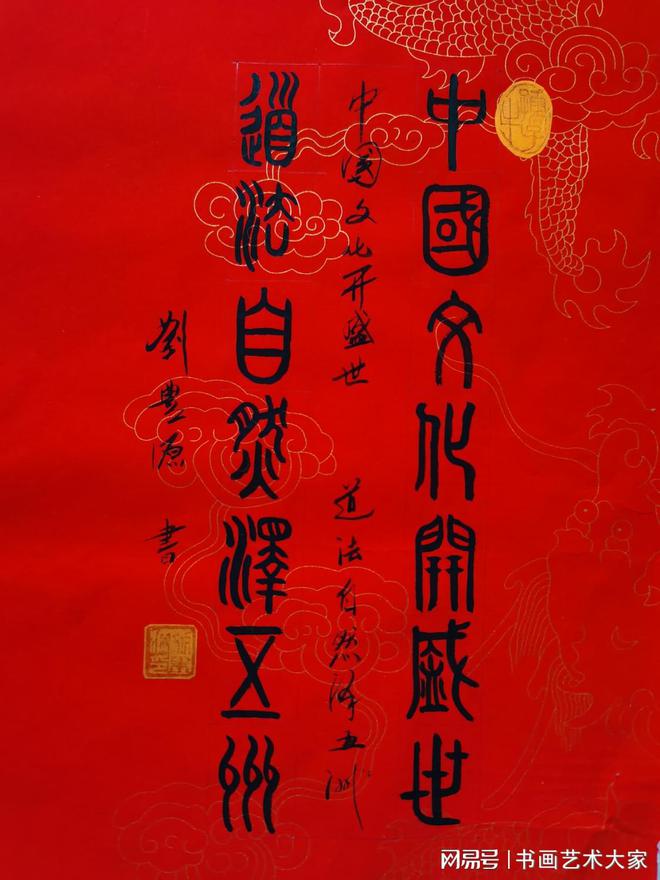 中國文化開盛世
中国文化开盛世 道法自然泽五洲
道法自然澤五州
劉豊源 書
网易号 | 书画艺术大家